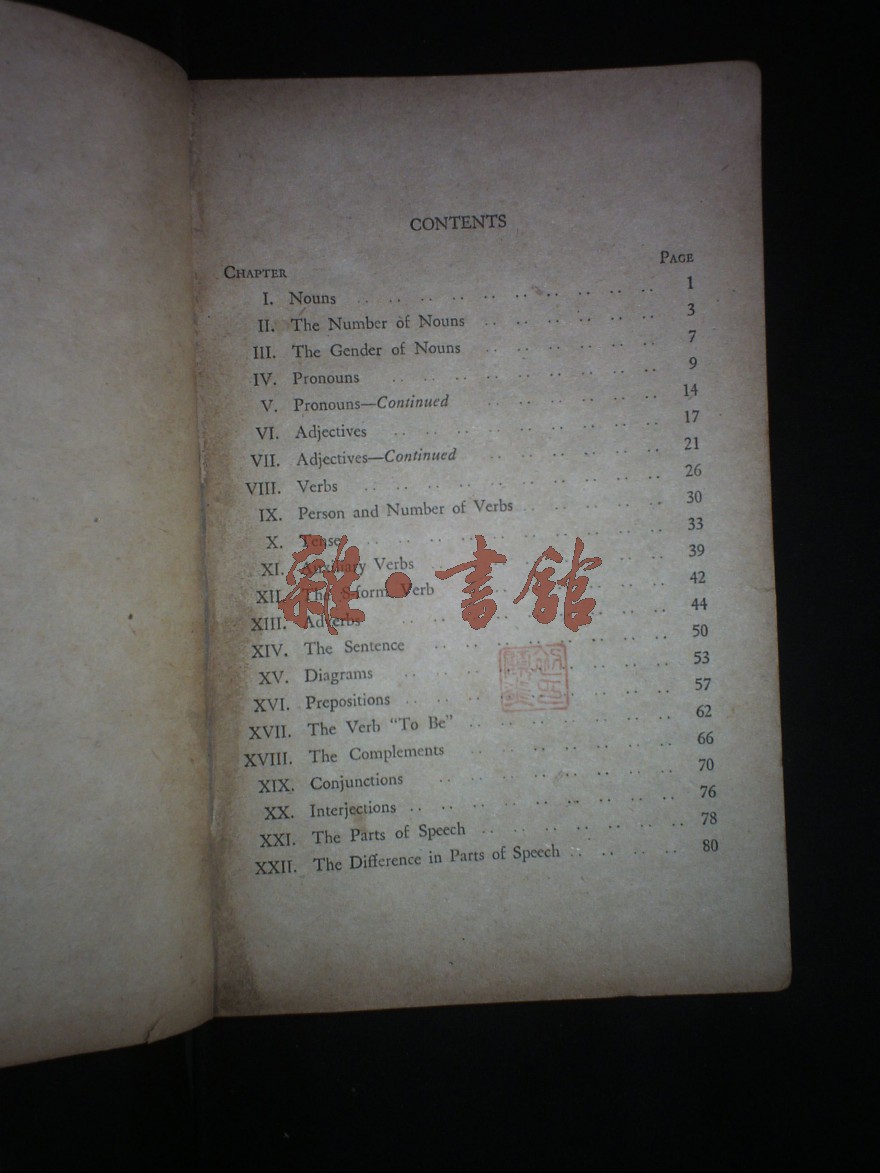 CONTENTS
CHAPTER PAGE
I. Nouns .. .. .. .. .. .. .. .. .. .. 1
II. The Number of Nouns .. .. .. .. .. .. 3
III. The Gender of Nouns .. .. .. .. .. .. 7
IV. Pronouns .. .. .. .. .. .. .. .. .. 9
V. Pronouns—Continued .. .. .. .. .. .. 14
VI. Adjectives .. .. .. .. .. .. .. .. .. 17
VII. Adjectives—Continued .. .. .. .. .. .. 21
VIII. Verbs .. .. .. .. .. .. .. .. .. .. 26
IX. Person and Number of Verbs .. .. .. .. .. 30
X. Tense .. .. .. .. .. .. .. .. .. .. 33
XI. Auxiliary Verbs .. .. .. .. .. .. .. .. 39
XII. The S-form Verb .. .. .. .. .. .. .. 42
XIII. Adverbs .. .. .. .. .. .. .. .. .. 44
XIV. The Sentence .. .. .. .. .. .. .. .. 50
XV. Diagrams .. .. .. .. .. .. .. .. .. 53
XVI. Prepositions .. .. .. .. .. .. .. .. .. 57
XVII. The Verb "To Be" .. .. .. .. .. .. .. 62
XVIII. The Complements .. .. .. .. .. .. .. 66
XIX. Conjunctions .. .. .. .. .. .. .. .. 70
XX. Interjections .. .. .. .. .. .. .. .. .. 76
XXI. The Parts of Speech .. .. .. .. .. .. .. 78
XXII. The Difference in Parts of Speech .. .. .. .. 80
雜·書館